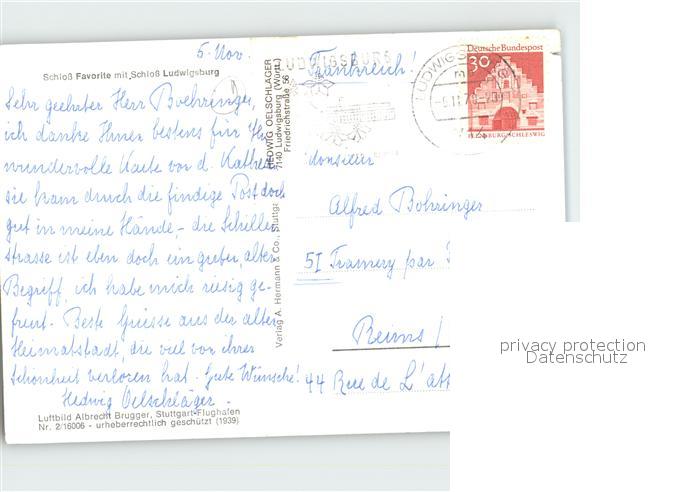 5. Nov.
Schloß Favorite mit Schloß Ludwigsburg
Sehr geehrter Herr Boehringer,
ich danke Ihnen bestens für Ihre
wundervolle Karte von d. Kathed
sie kam druch die findige Post doch
gut in meine Hände, - die Schiller
strasse ist eben doch ein guter, alter
Begriff, ich habe mich riesig ge-
freut. Beste Grüsse aus der alten
Heimatstadt, die viel von ihrer
Schönheit verloren hat. Gute Wünsche!
Hedwig Oelschläger -
Luftbild Albrecht Brugger, Stuttgart-Flughafen
Nr. 2/16006 - urheberrechtlich geschützt (1939)
HEDWIG OELSCHLÄGER
7140 Ludwigsburg (Württ.)
Friedrichstraße 56
Verlag A. Hermann & Co., Stuttgart
LUDWIGSBURG
Frankreich!
LUDWIGSBURG
Deutsche Bundespost
30
FLENSBURG/SCHLESWIG
Monsieur
Alfred Bohringer
51 Tramery par
Reims /
44 Rue de L'att
privacy protection
Datenschutz